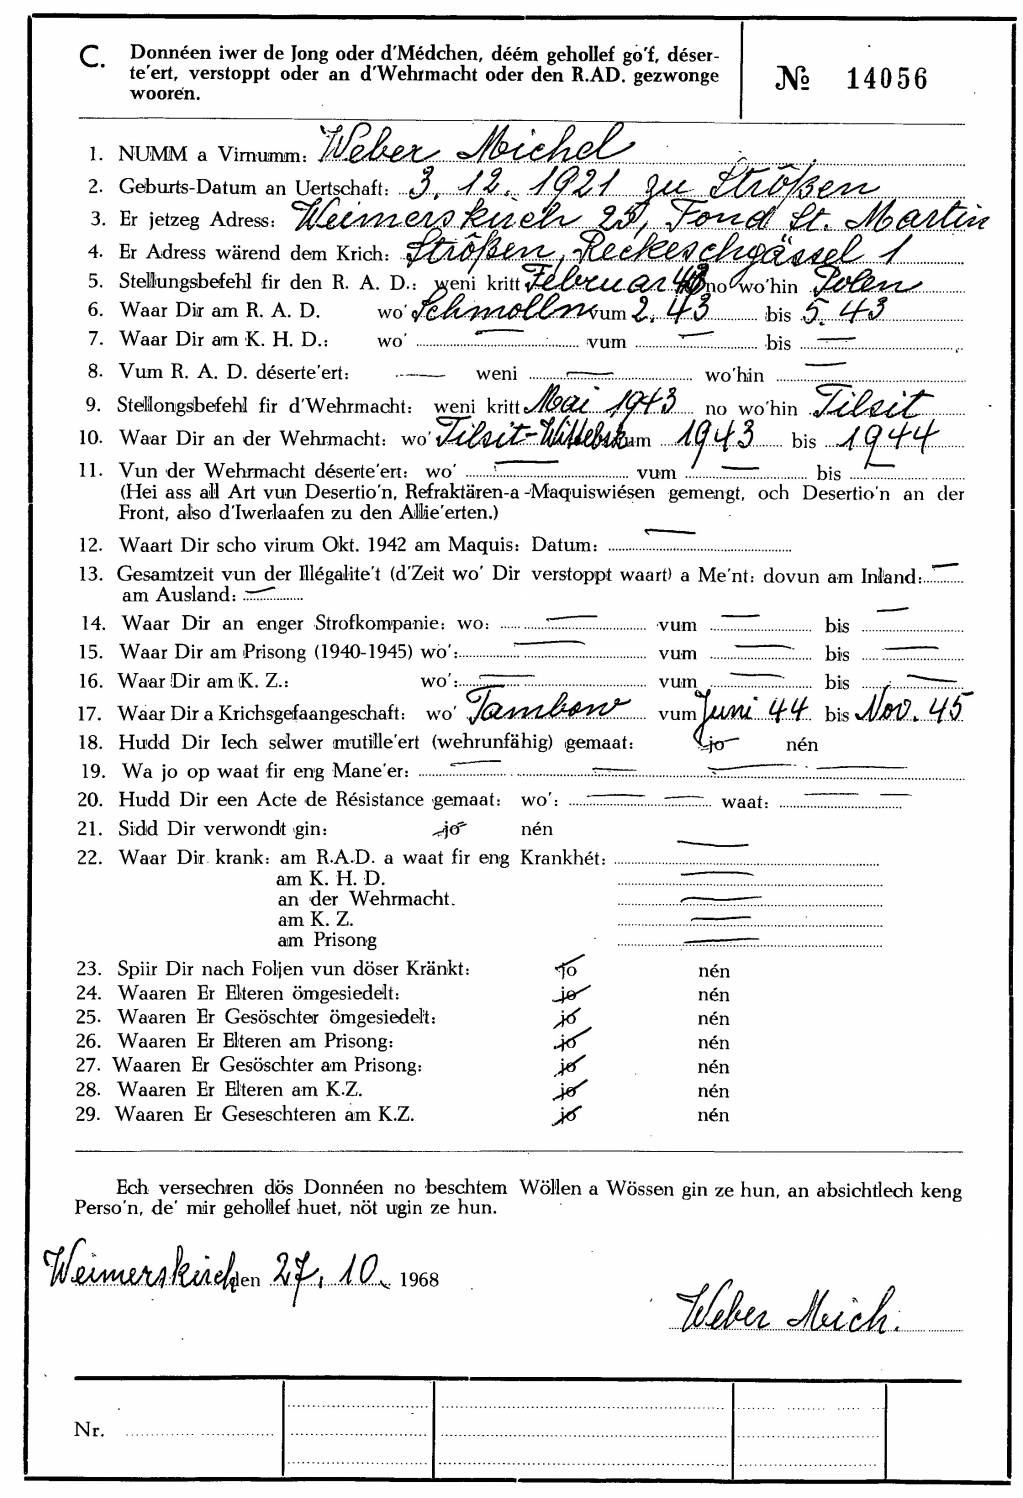 C. Donnéen iwer de Jong oder d'Médchen, déém gehollef go'f, déser-
te'ert, verstoppt oder an d'Wehrmacht oder den R.AD. gezwonge
wooren.
№ 14056
1. NUMM a Virnumm: Weber Michel
2. Geburts-Datum an Uertschaft: 3. 12. 1921 zu Strößen
3. Er jetzeg Adress: Weimerskirch 25, Fond St. Martin
4. Er Adress wärend dem Krich: Strößen, Reckeschgässel 1
5. Stellungsbefehl fir den R. A. D.: weni kritt Februar 43 no wo'hin Polen
6. Waar Dir am R. A. D. wo' Schmolln vum 2. 43 bis 5. 43
7. Waar Dir am K. H. D.: wo' — vum — bis —
8. Vum R. A. D. déserte'ert: — weni — wo'hin —
9. Stellongsbefehl fir d'Wehrmacht: weni kritt Mai 1943 no wo'hin Tilsit
10. Waar Dir an der Wehrmacht: wo' Tilsit-Wittebsk vum 1943 bis 1944
11. Vun der Wehrmacht déserte'ert: wo' — vum — bis —
(Hei ass all Art vun Desertio'n, Refraktären-a-Maquiswiésen gemengt, och Desertio'n an der
Front, also d'Iwerlaafen zu den Allie'erten.)
12. Waart Dir scho virum Okt. 1942 am Maquis: Datum: —
13. Gesamtzeit vun der Illégalite't (d'Zeit wo' Dir verstoppt waart) a Me'nt: dovun am Inland: —
am Ausland: —
14. Waar Dir an enger Strofkompanie: wo: — vum — bis —
15. Waar Dir am Prisong (1940-1945) wo': — vum — bis —
16. Waar Dir am K. Z.: wo': — vum — bis —
17. Waar Dir a Krichsgefaangeschaft: wo' Tambow vum Juni 44 bis Nov. 45
18. Hudd Dir Iech selwer mutille'ert (wehrunfähig) gemaat: jo nén
19. Wa jo op waat fir eng Mane'er: — — — —
20. Hudd Dir een Acte de Résistance gemaat: wo': — — waat: — —
21. Sidd Dir verwondt gin: jo nén
22. Waar Dir krank: am R.A.D. a waat fir eng Krankhét: —
am K. H. D. —
an der Wehrmacht. —
am K. Z. —
am Prisong —
23. Spiir Dir nach Foljen vun döser Kränkt: jo nén
24. Waaren Er Elteren ömgesiedelt: jo nén
25. Waaren Er Gesöschter ömgesiedelt: jo nén
26. Waaren Er Elteren am Prisong: jo nén
27. Waaren Er Gesöschter am Prisong: jo nén
28. Waaren Er Elteren am K.Z. jo nén
29. Waaren Er Geseschteren am K.Z. jo nén
Ech versechren dös Donnéen no beschtem Wöllen a Wössen gin ze hun, an absichtlech keng
Perso'n, de' mir gehollef huet, nöt ugin ze hun.
Weimerskirch den 27. 10. 1968
Weber Mich.
Nr.